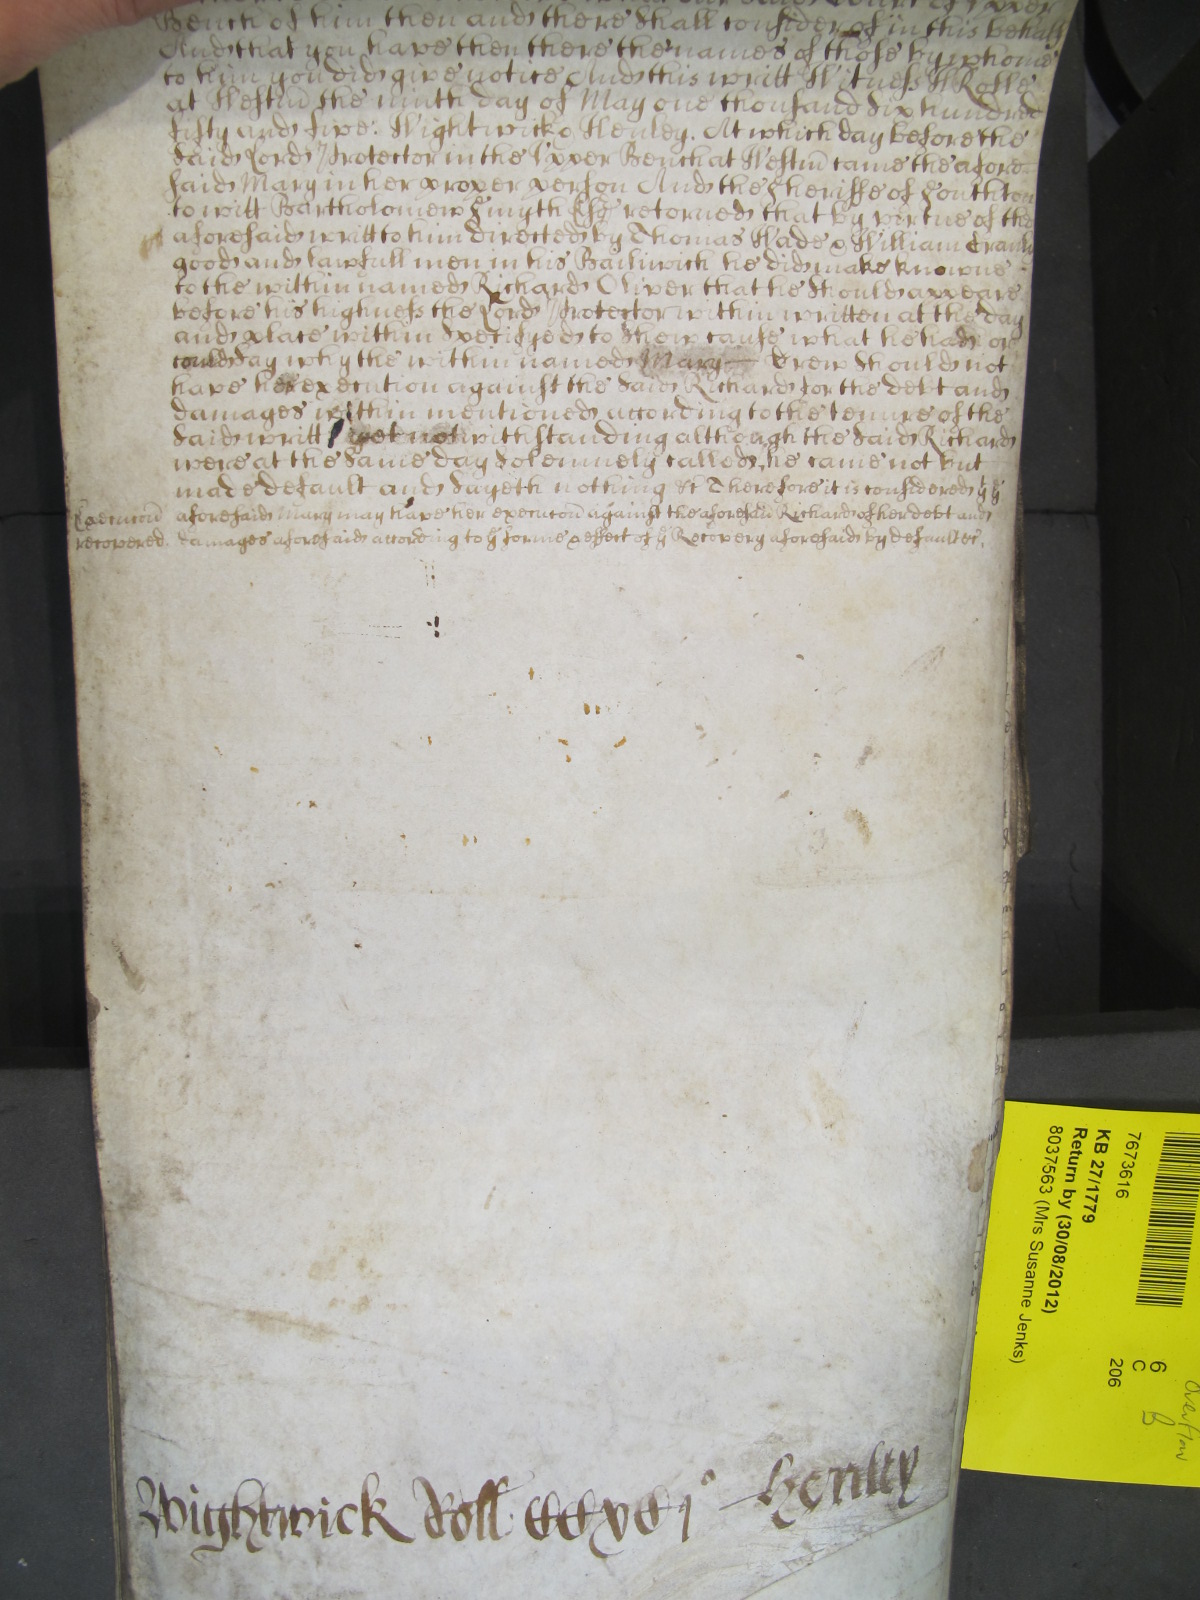 Bench of him then and there shall consider of in this behalf
And that you have then there the names of those by whome
to him you did give notice And this writt Witness H Rolle
at Westm the ninth day of May one thousand six hundred
fifty and five. Wightwick & Henley. At which day before the
said Lord Protector in the Upper Bench at Westm came the afore
said Mary in her proper person And the Sheriffe of Southton
to witt Bartholomew Smyth Esq retorned that by virtue of the
aforesaid writt to him directed by Thomas Wade & William
good and lawfull men in his Bailiwick he did make knowne
to the within named Richard Oliver that he should appeare
before his highness the Lord Protector within written at the day
and place within specifyed to show cause what he had or
could say why the within named Mary Drew should not
have her execution against the said Richard for the debt and
damages within mentioned according to the tenure of the
said writt yet notwithstanding although the said Richard
were at the same day solemnely called, he came not but
made default and sayeth nothing &c Therefore it is considered yt ye
Execucion
recovered.
aforesaid Mary may have her execucon against the aforesaid Richard of her debt and
damages aforesaid according to ye forme & effect of ye Recovery aforesaid by default &c.
Wightwick Roll CCxCj° Henley
7673616
KB 27/1779
Return by (30/08/2012)
8037563 (Mrs Susanne Jenks)
6
C
206
Overflow
B